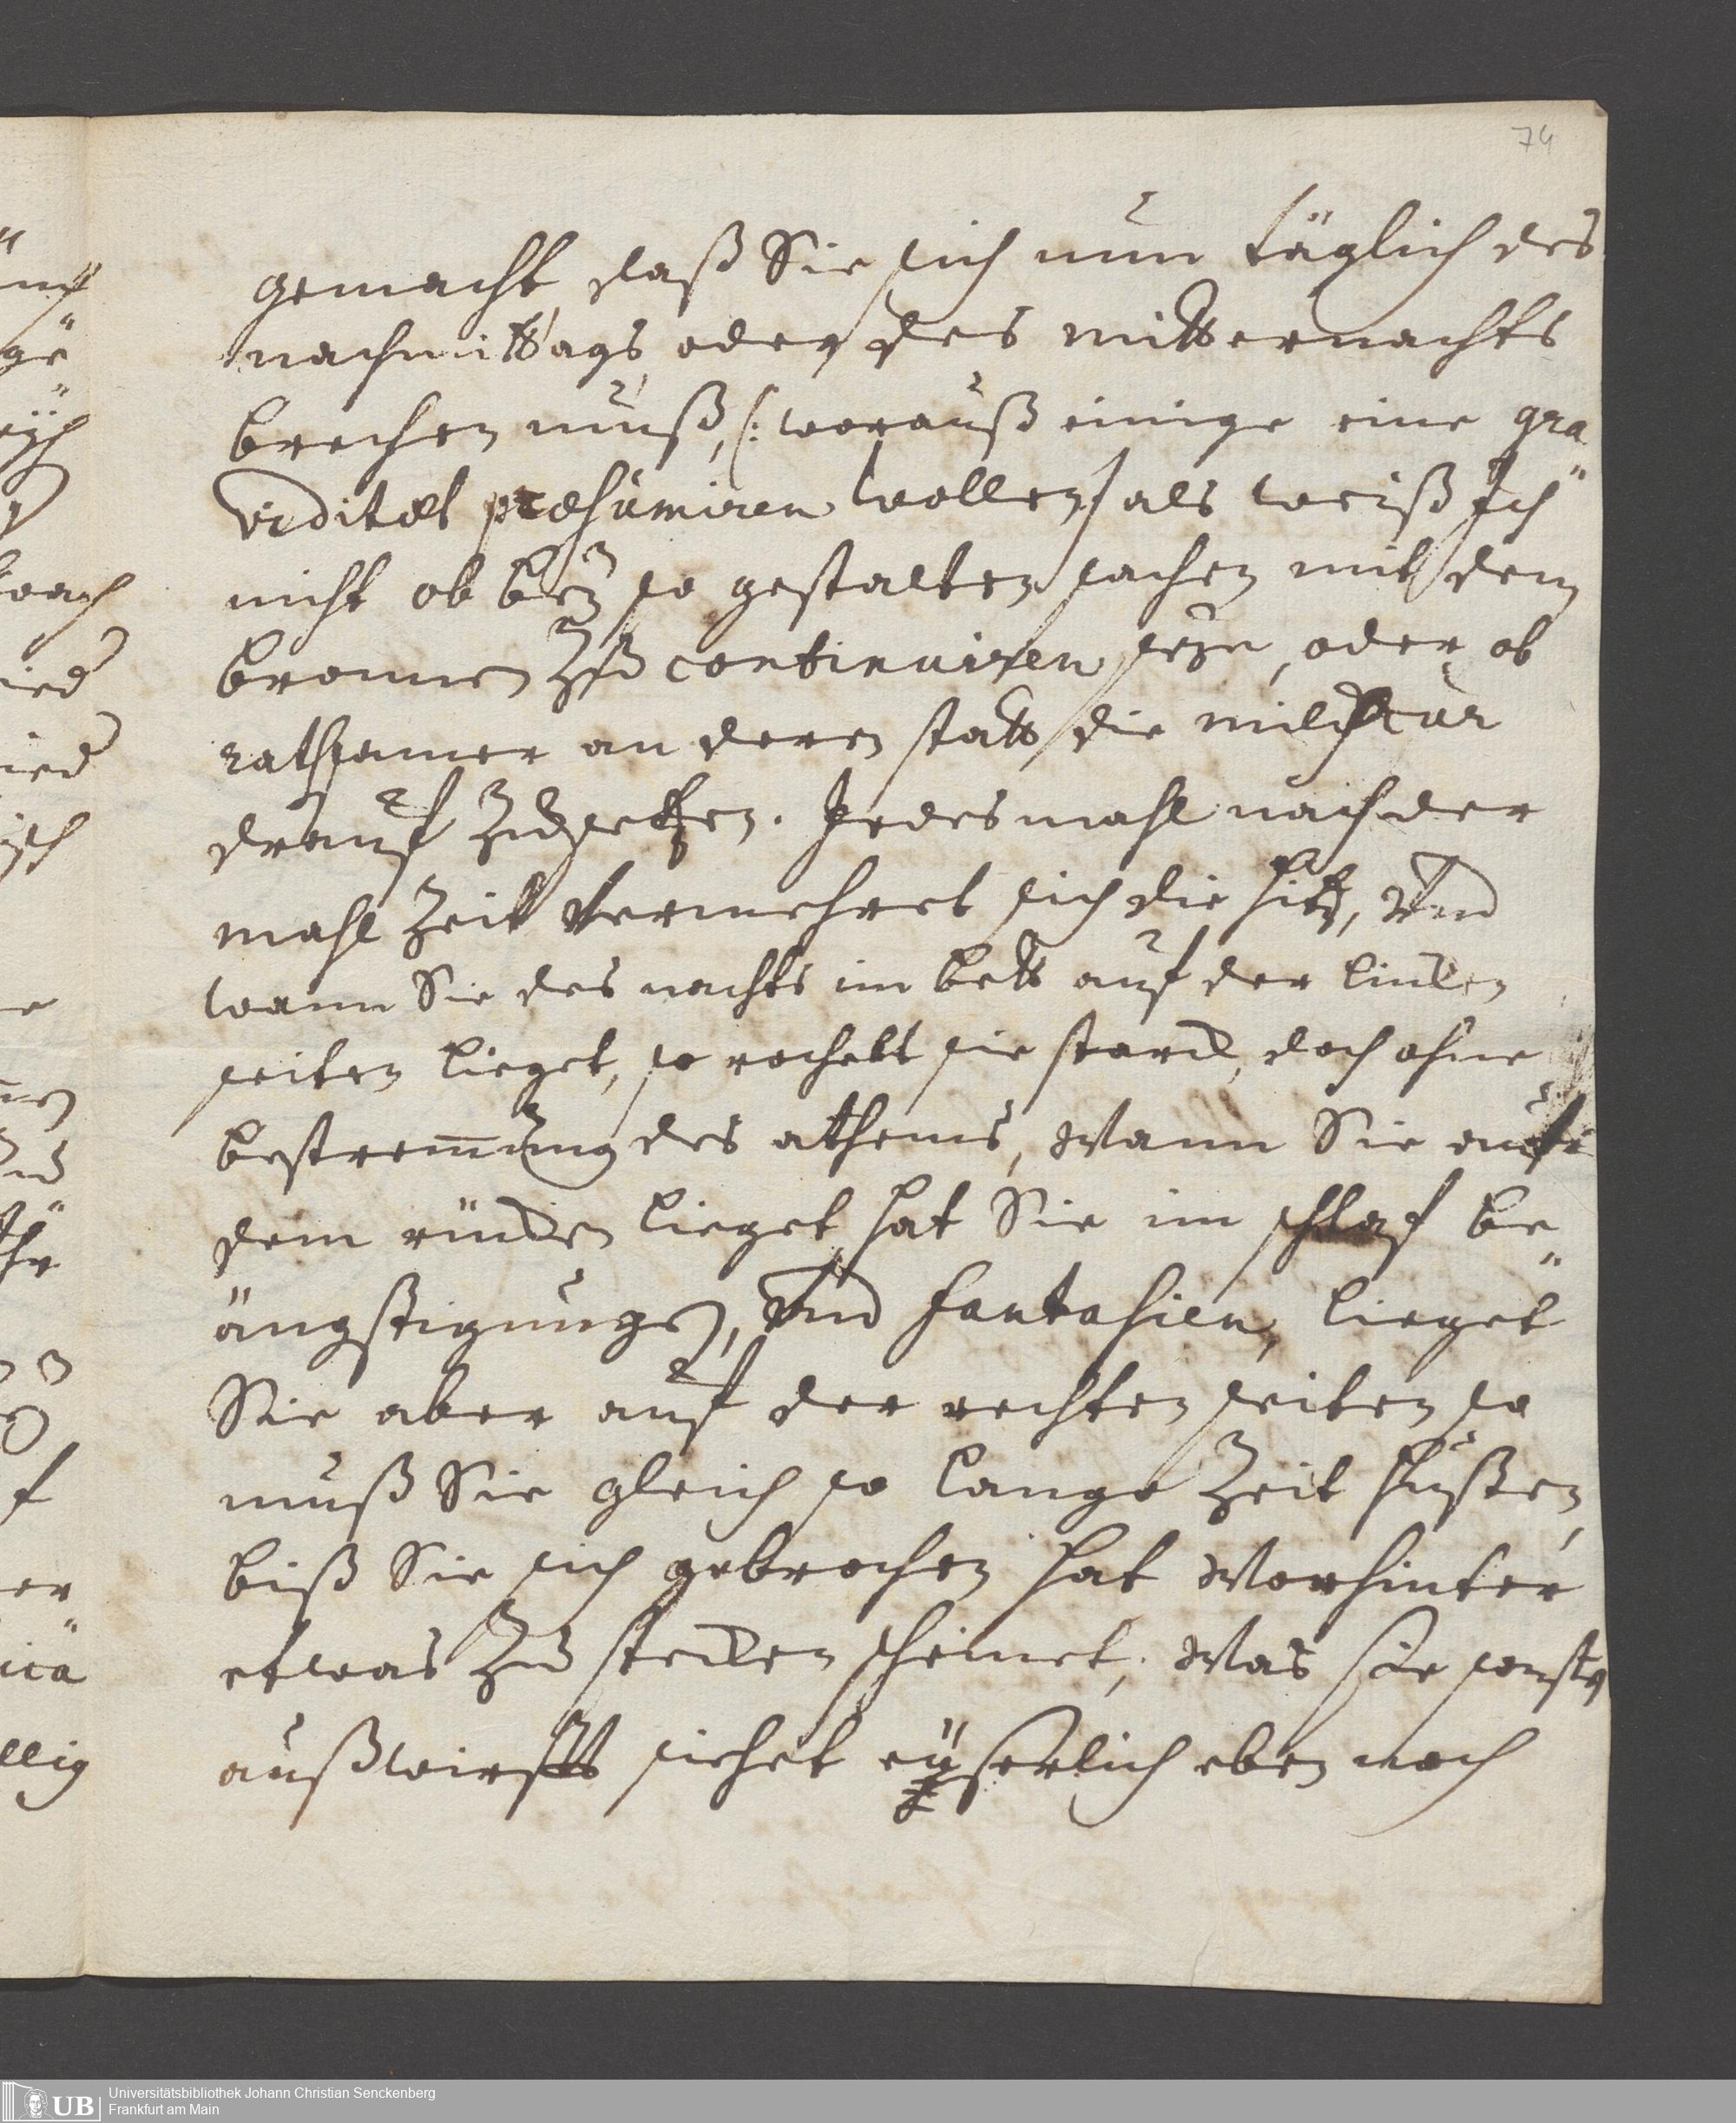 74
gemacht, daß Sie sich nun täglich des
nachmittags, oder des mitternachts
brechen muß, (: woraúß einige eine gra
viditæt præsúmiren wollen) als weiß Ich
nicht ob beÿ so gestalten sachen mit dem
bronnen zu continuiren seÿe, oder ob
rathsamer an deren statt, die milch cur
drauf zu setzen. Jedesmahl nach der
mahl Zeit vermehret sich die hitz, vnd
wann Sie des nachts im bett auf der lincken
seiten lieget, so rochelt sie starck, doch ohne
bestremung des athems, Wann Sie auf
dem rücken lieget hat Sie im schlaf be
ängstigungen, vnd fantasien, lieget
Sie aber auf der rechten seiten so
muß Sie gleich so lange Zeit husten,
biß Sie sich gebrochen hat Worhinter
etwas Zu stecken scheinet, Was sie sonsten
außwirfft siehet eÿserlich eben noch
UB
Universitätsbibliothek Johann Christian Senckenberg
Frankfurt am Main